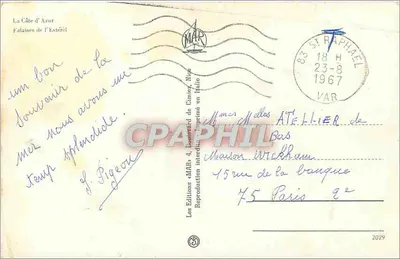 La Côte d'Azur
Falaises de l'Estérel
un bon
Souvenir de la
mer nous avons un
temp splendide.
J. Pigeon
MAR
Les Editions «MAR» 4, de Cimiez, Nice
Reproduction interdite en Italie
T
83 ST RAPHAEL
18 H
23-8
1967
VAR
CPAPHIL
ATELLIER de
Bas
Maison Wickham
15 rue de la banque
75 Paris 2e
2029